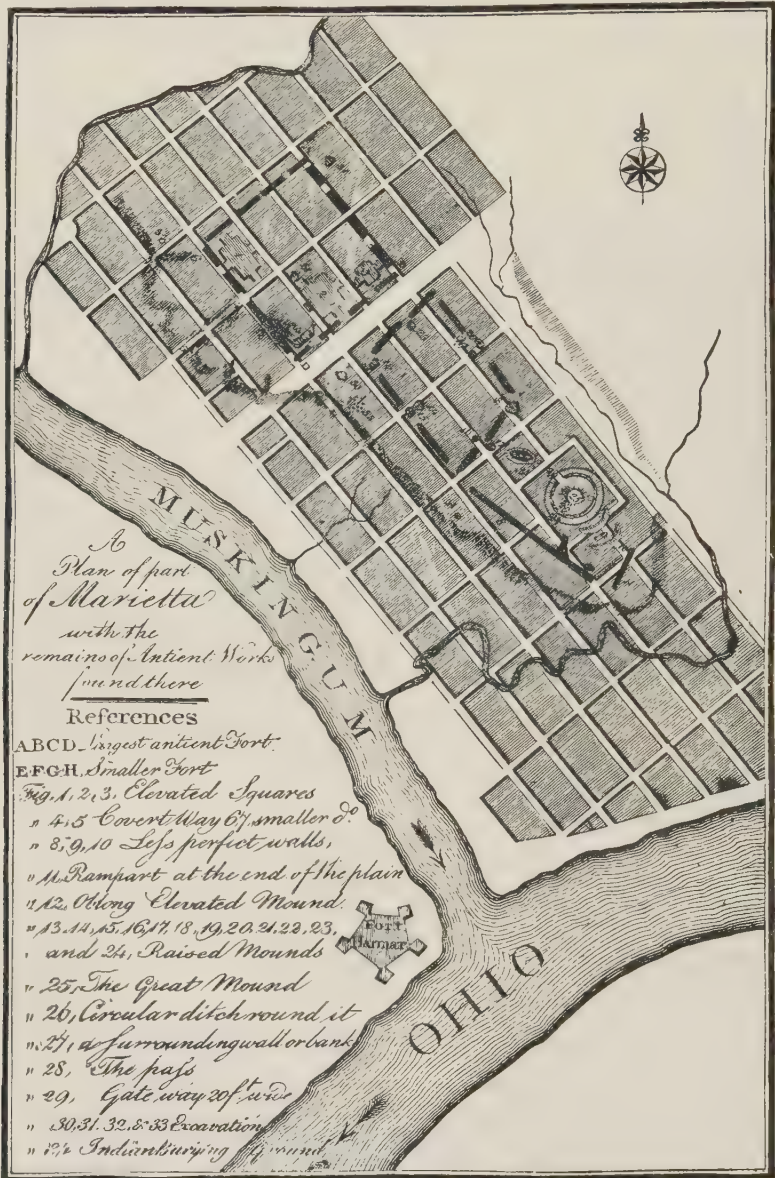 A
Plan of part
of Marietta
with the
remains of Antient Works
found there
References
ABCD Largest antient Fort.
EFGH, Smaller Fort
Fig. 1, 2, 3, Elevated Squares
" 4, 5 Covert Way 67, smaller do
" 8, 9, 10 Less perfect walls,
" 11, Rampart at the end of the plain
" 12, Oblong Elevated Mound.
" 13, 14, 15, 16, 17, 18, 19, 20, 21, 22, 23,
" and 24, Raised Mounds
" 25, The Great Mound
" 26, Circular ditch round it
" 27, a surrounding wall or bank
" 28, The pass
" 29, Gate way 20 ft wide
" 30, 31, 32, & 33 Excavation
" Indian burying Ground
MUSKINGUM
FORT
Harmar
OHIO